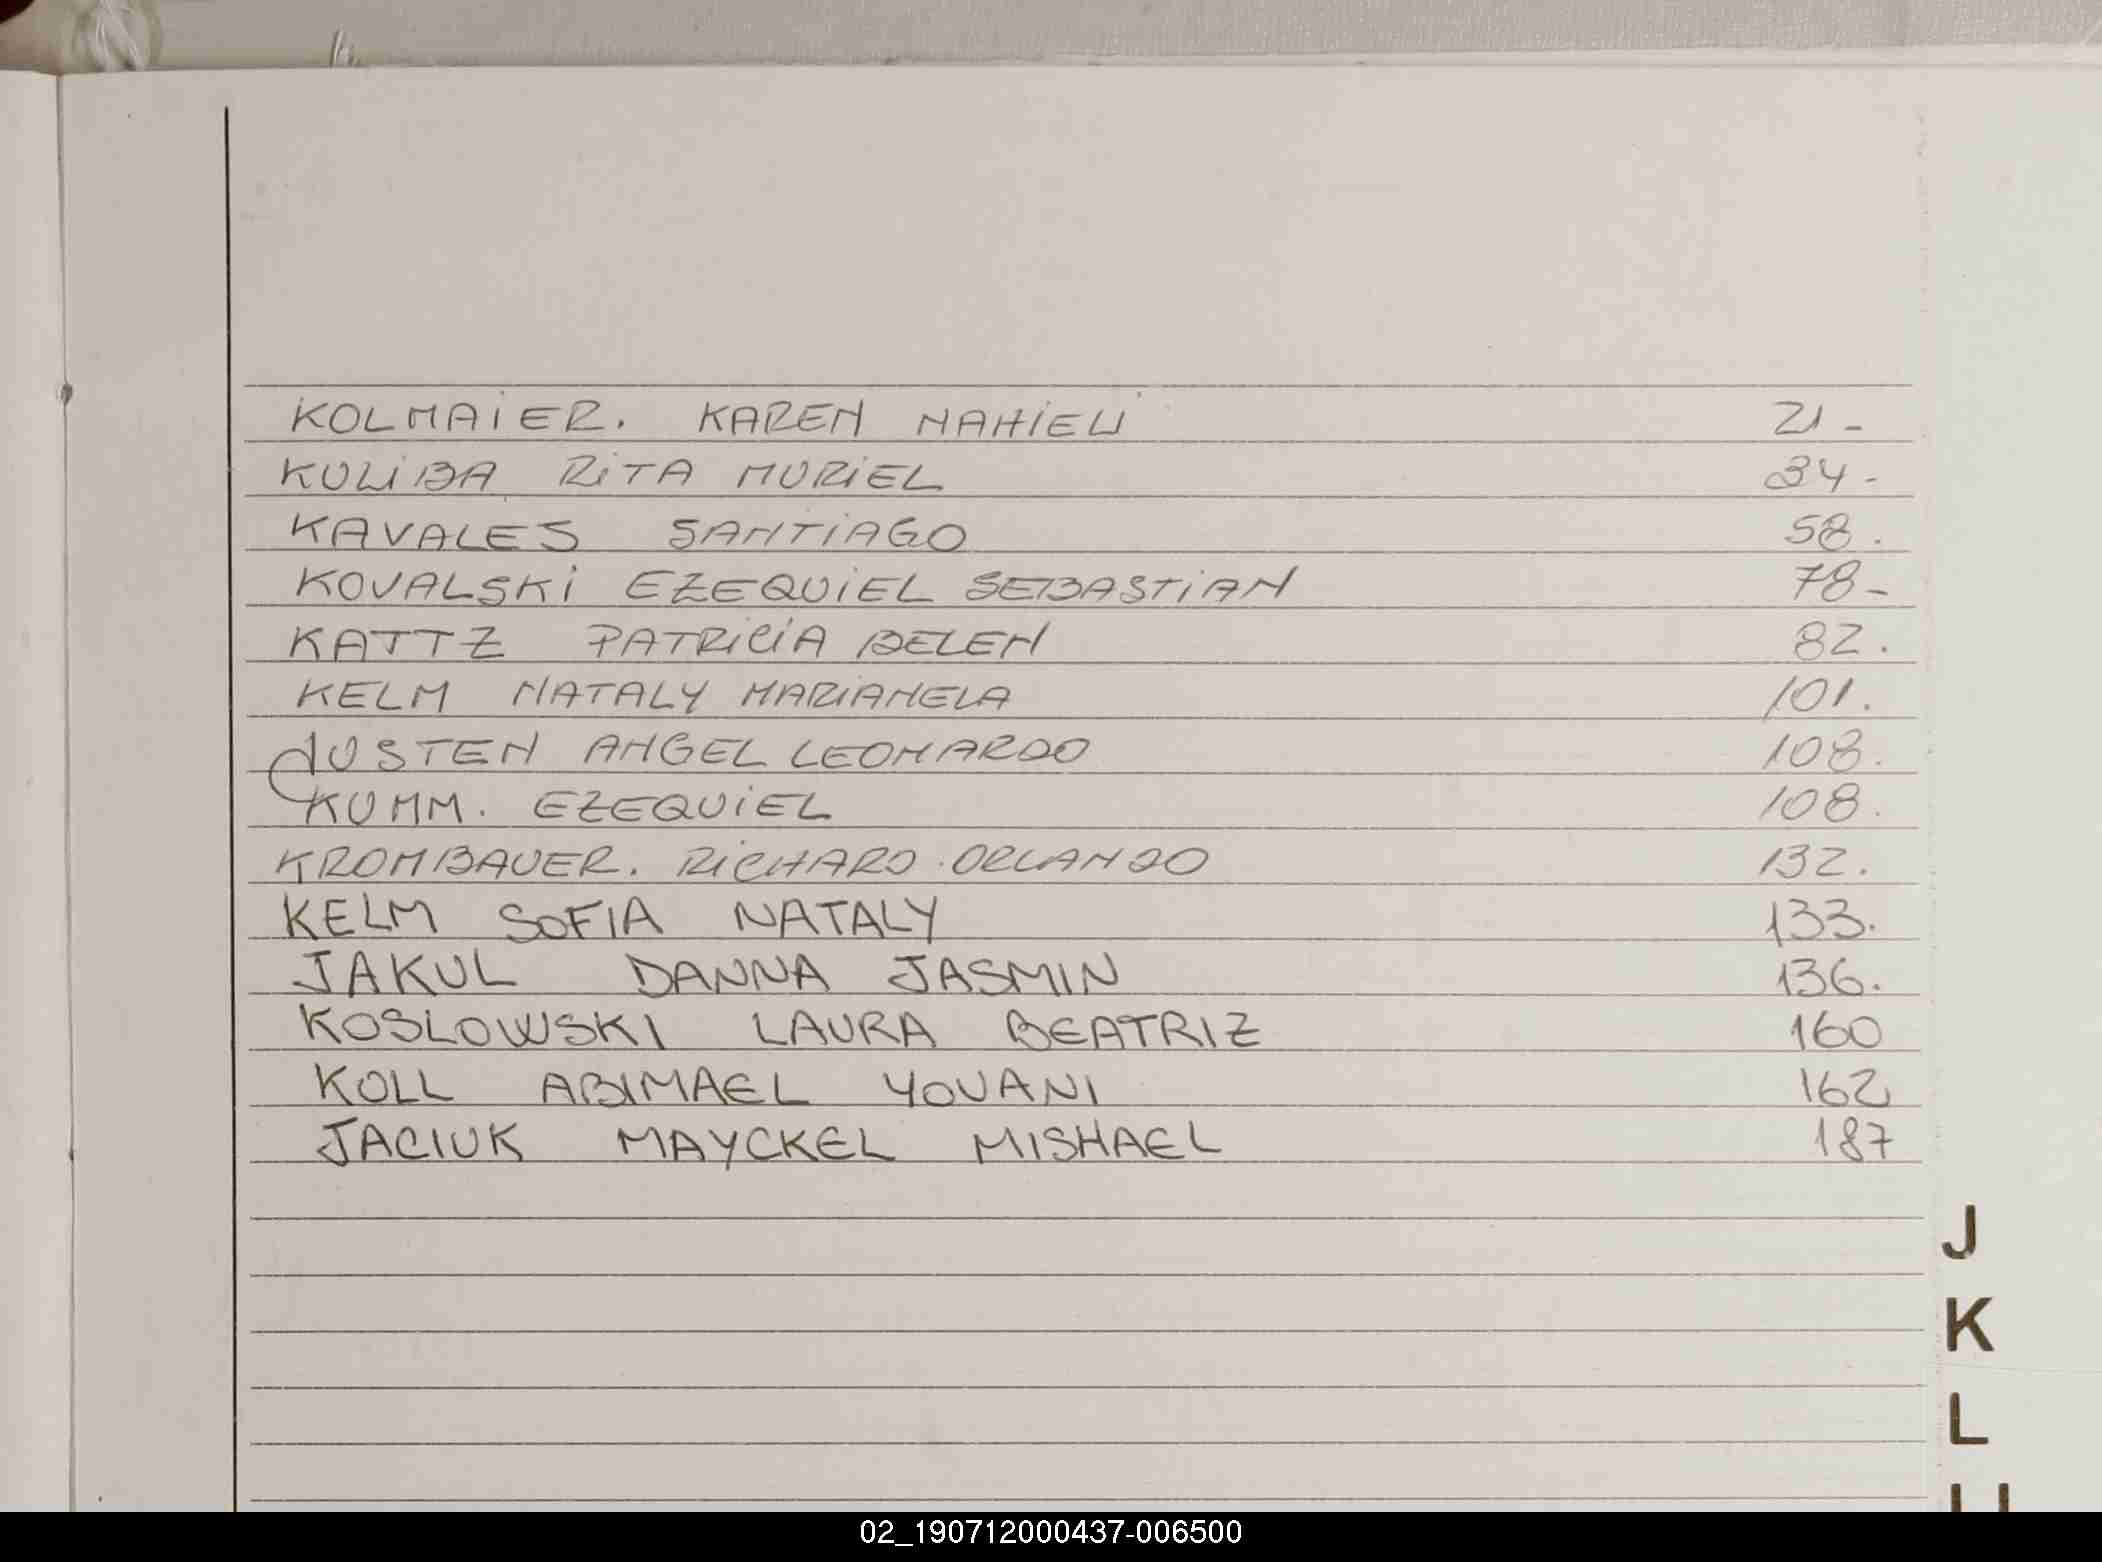 KOLMAIER. KAREN NAHIELI 21-
KULIBA RITA MURIEL 34-
KAVALES SANTIAGO 58.
KOVALSKI EZEQUIEL SEBASTIAN 78-
KATTZ PATRICIA BELEN 82.
KELM NATALY MARIANELA 101.
JUSTEN ANGEL LEONARDO 108.
KUMM. EZEQUIEL 108.
KROMBAUER. RICHARD. ORLANDO 132.
KELM SOFIA NATALY 133.
JAKUL DANNA JASMIN 136.
KOSLOWSKI LAURA BEATRIZ 160
KOLL ABIMAEL YOVANI 162
JACIUK MAYCKEL MISHAEL 187
J
K
L
02_190712000437-006500